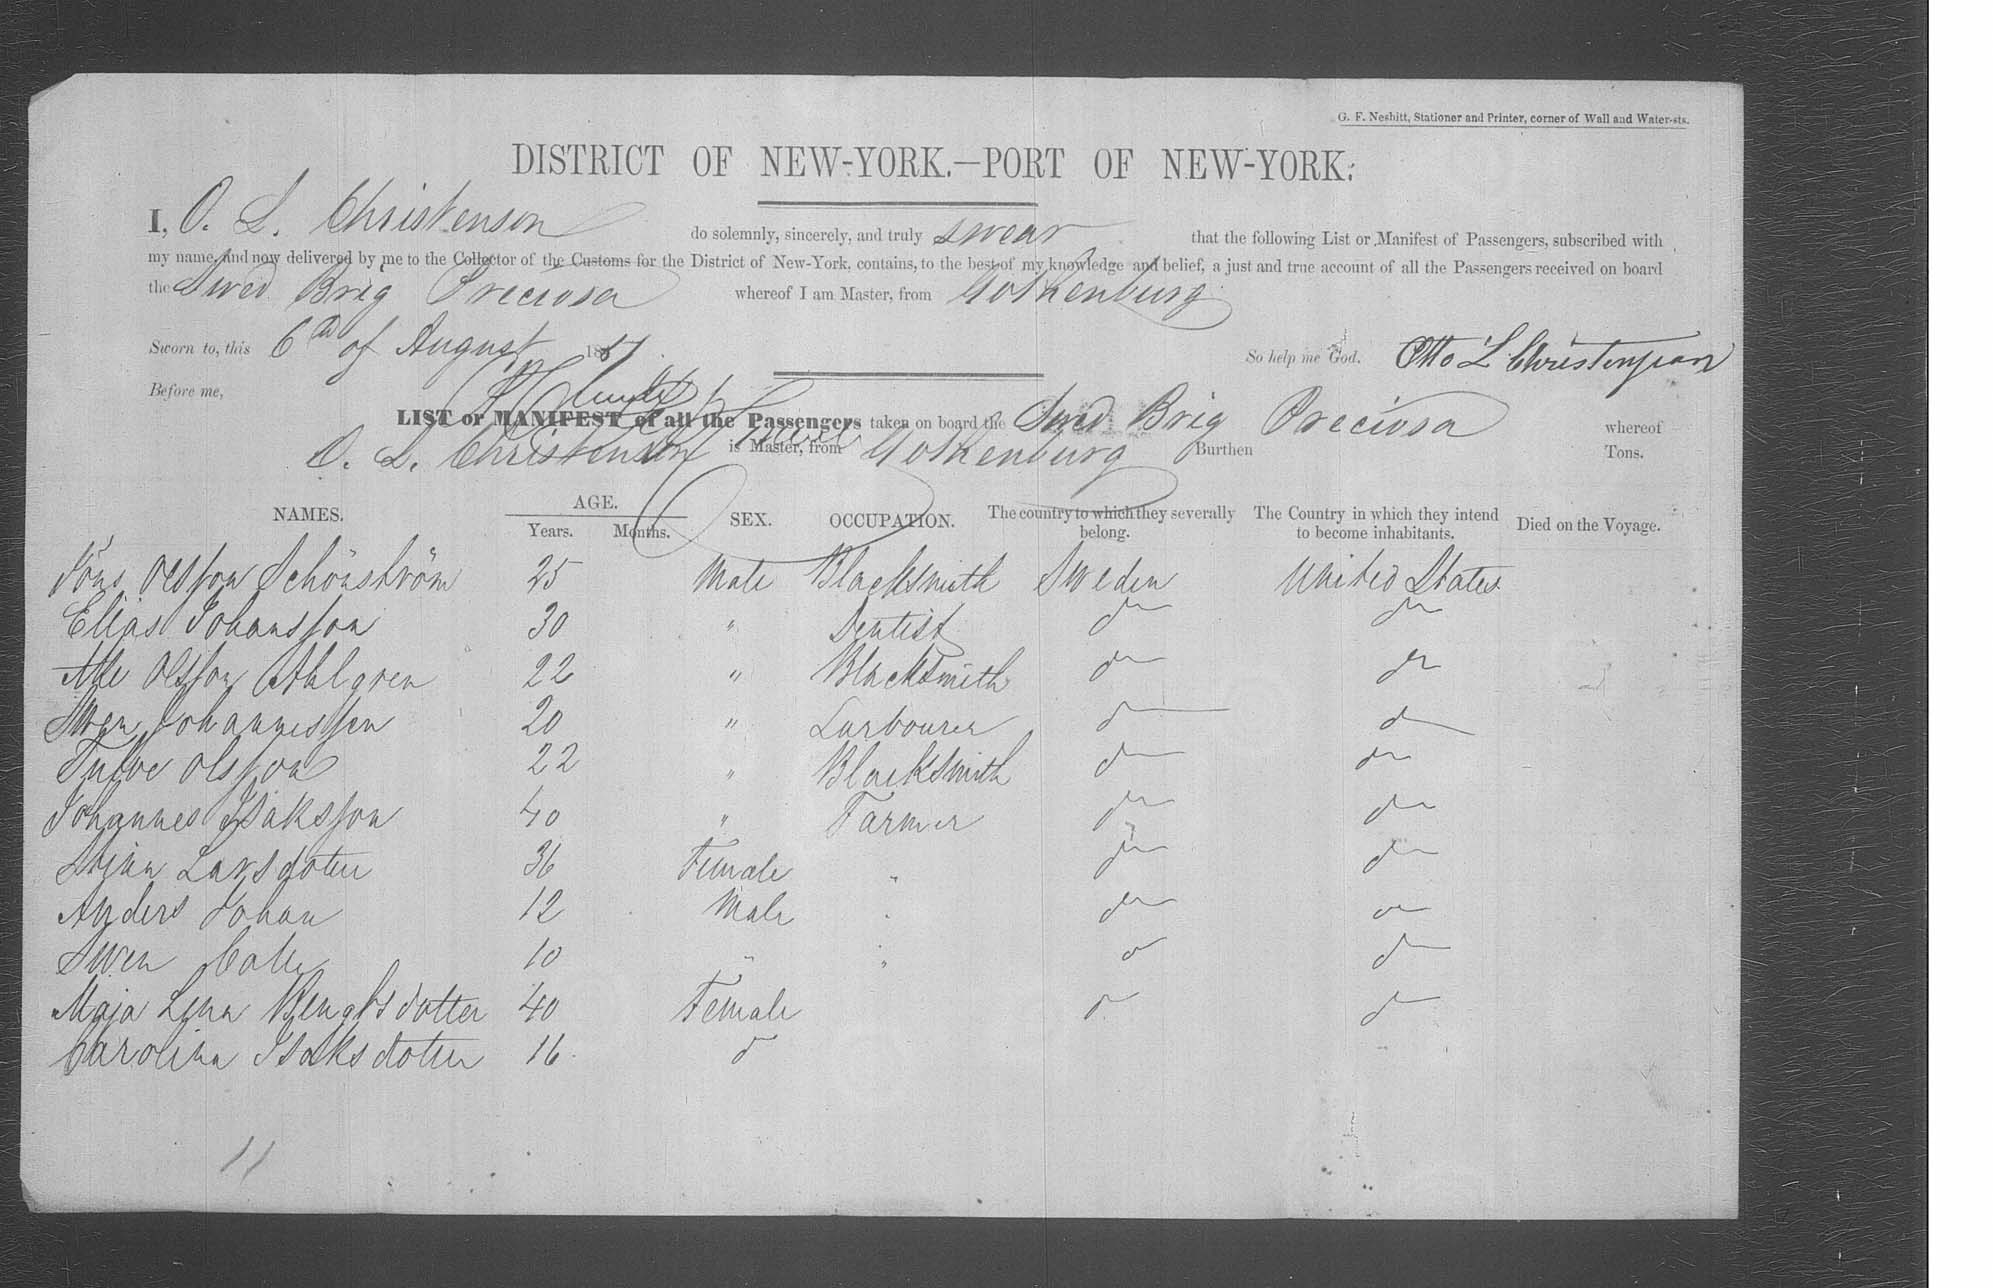 G. F. Nesbitt, Stationer and Printer, corner of Wall and Water-sts.
DISTRICT OF NEW-YORK.—PORT OF NEW-YORK.
I, O. L. Christenson do solemnly, sincerely, and truly swear that the following List or Manifest of Passengers, subscribed with
my name, and now delivered by me to the Collector of the Customs for the District of New-York, contains, to the best of my knowledge and belief, a just and true account of all the Passengers received on board
the Swed Brig Preciosa whereof I am Master, from Gothenburg
Sworn to, this 6th of August 1851 So help me God. Otto L Christensson
Before me,
LIST or MANIFEST of all the Passengers taken on board the Swed Brig Preciosa whereof
O. L. Christenson is Master, from Gothenburg Burthen Tons.
NAMES. AGE. SEX. OCCUPATION. The country to which they severally belong. The Country in which they intend to become inhabitants. Died on the Voyage.
Years. Months.
Jöns Olsson Schönström 25 Male Blacksmith Sweden United States
Elias Johansson 30 " Dentist do do
Olsson Ahlgren 22 " Blacksmith do do
Swen Johannesson 20 " Larbourer do do
Olsson 22 " Blacksmith do do
Johannes Isaksson 40 " Farmer do do
Stina Larsdotter 36 Female " do do
Anders Johan 12 Male " do do
Swen 10 " " do do
Maja Lena Bengtsdotter 40 Female do do
Carolina Isaksdotter 16 do
11